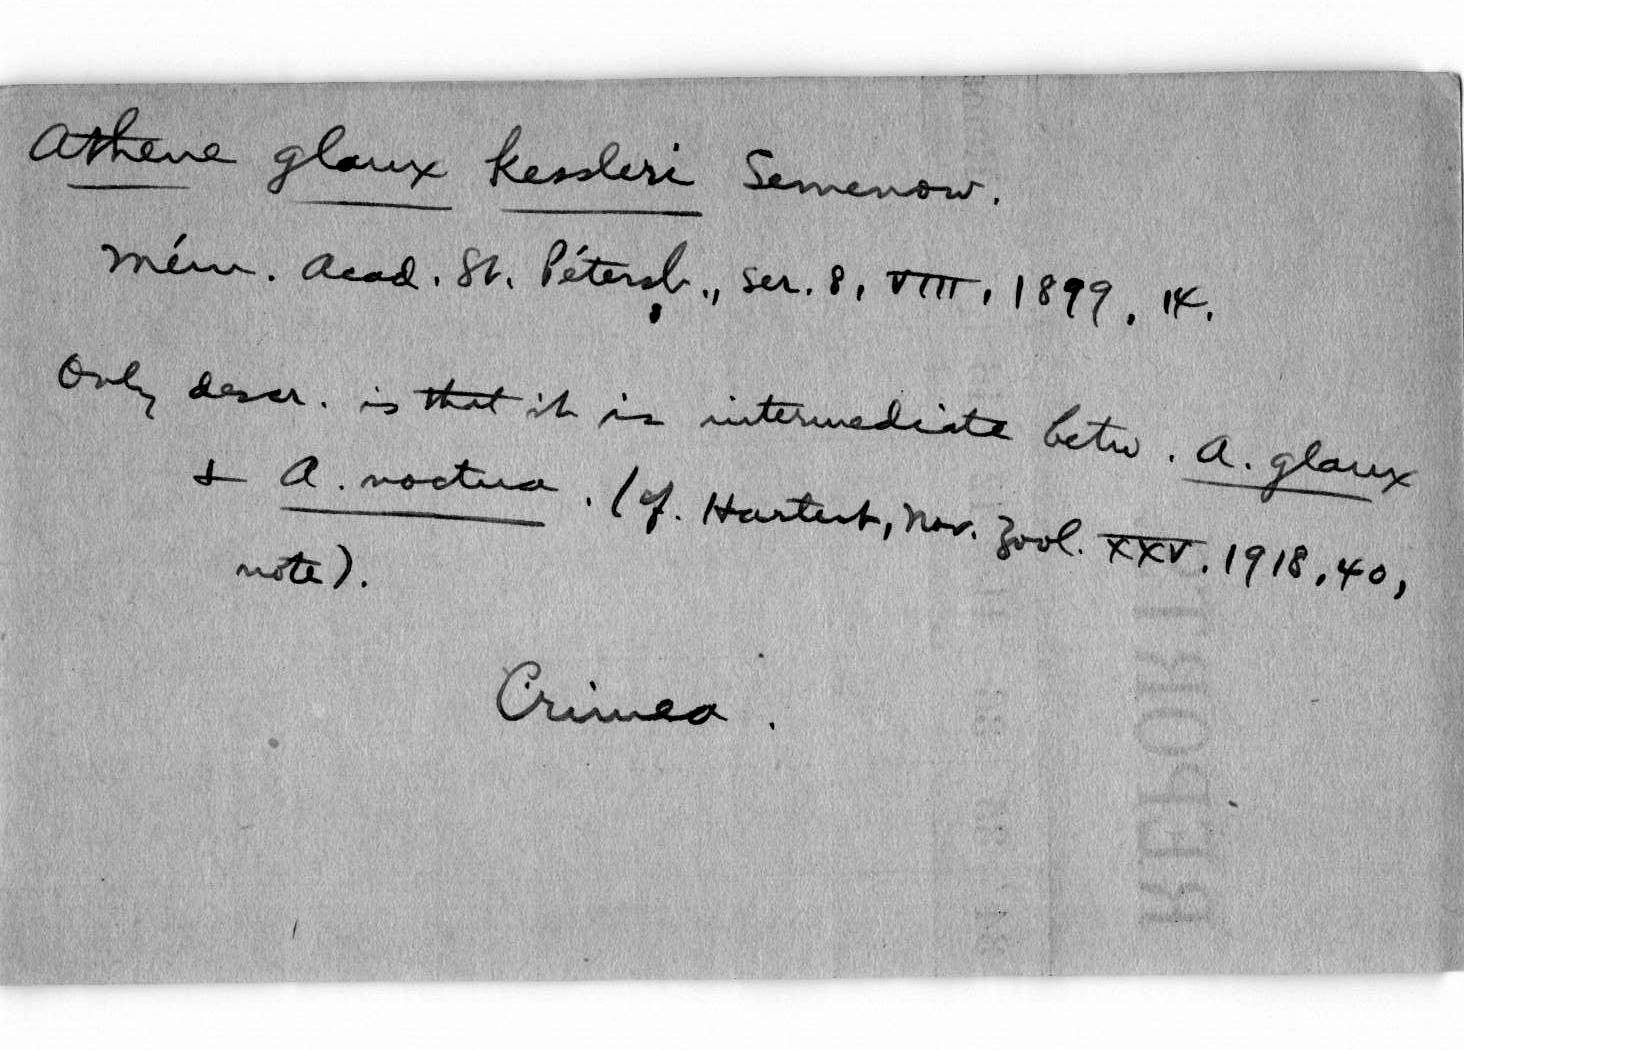 Athene glaux kessleri Semenow.
Mém. Acad. St. Pétersb., ser. 8, VIII, 1899, 14.
Only descr. is that it is intermediate betw. A. glaux
& A. noctua. (cf. Hartert, Nov. Zool. XXV. 1918, 40,
note).
Crimea.
REPORT